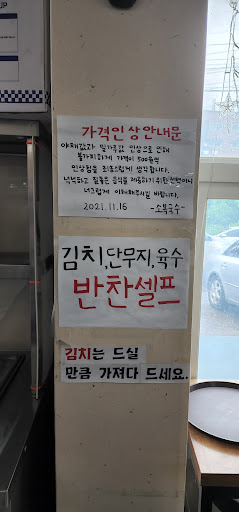 가격인상안내문
야채값과 밀가루값 인상으로 인해
불가피하게 가격이 500원씩
인상됨을 죄송스럽게 생각합니다.
넉넉하고 질좋은 음식을 제공하기 위한 선택이니
너그럽게 이해해주시길 바랍니다.
2021.11.16 -소복국수-
김치,단무지,육수
반찬셀프
김치는 드실
만큼 가져다 드세요.